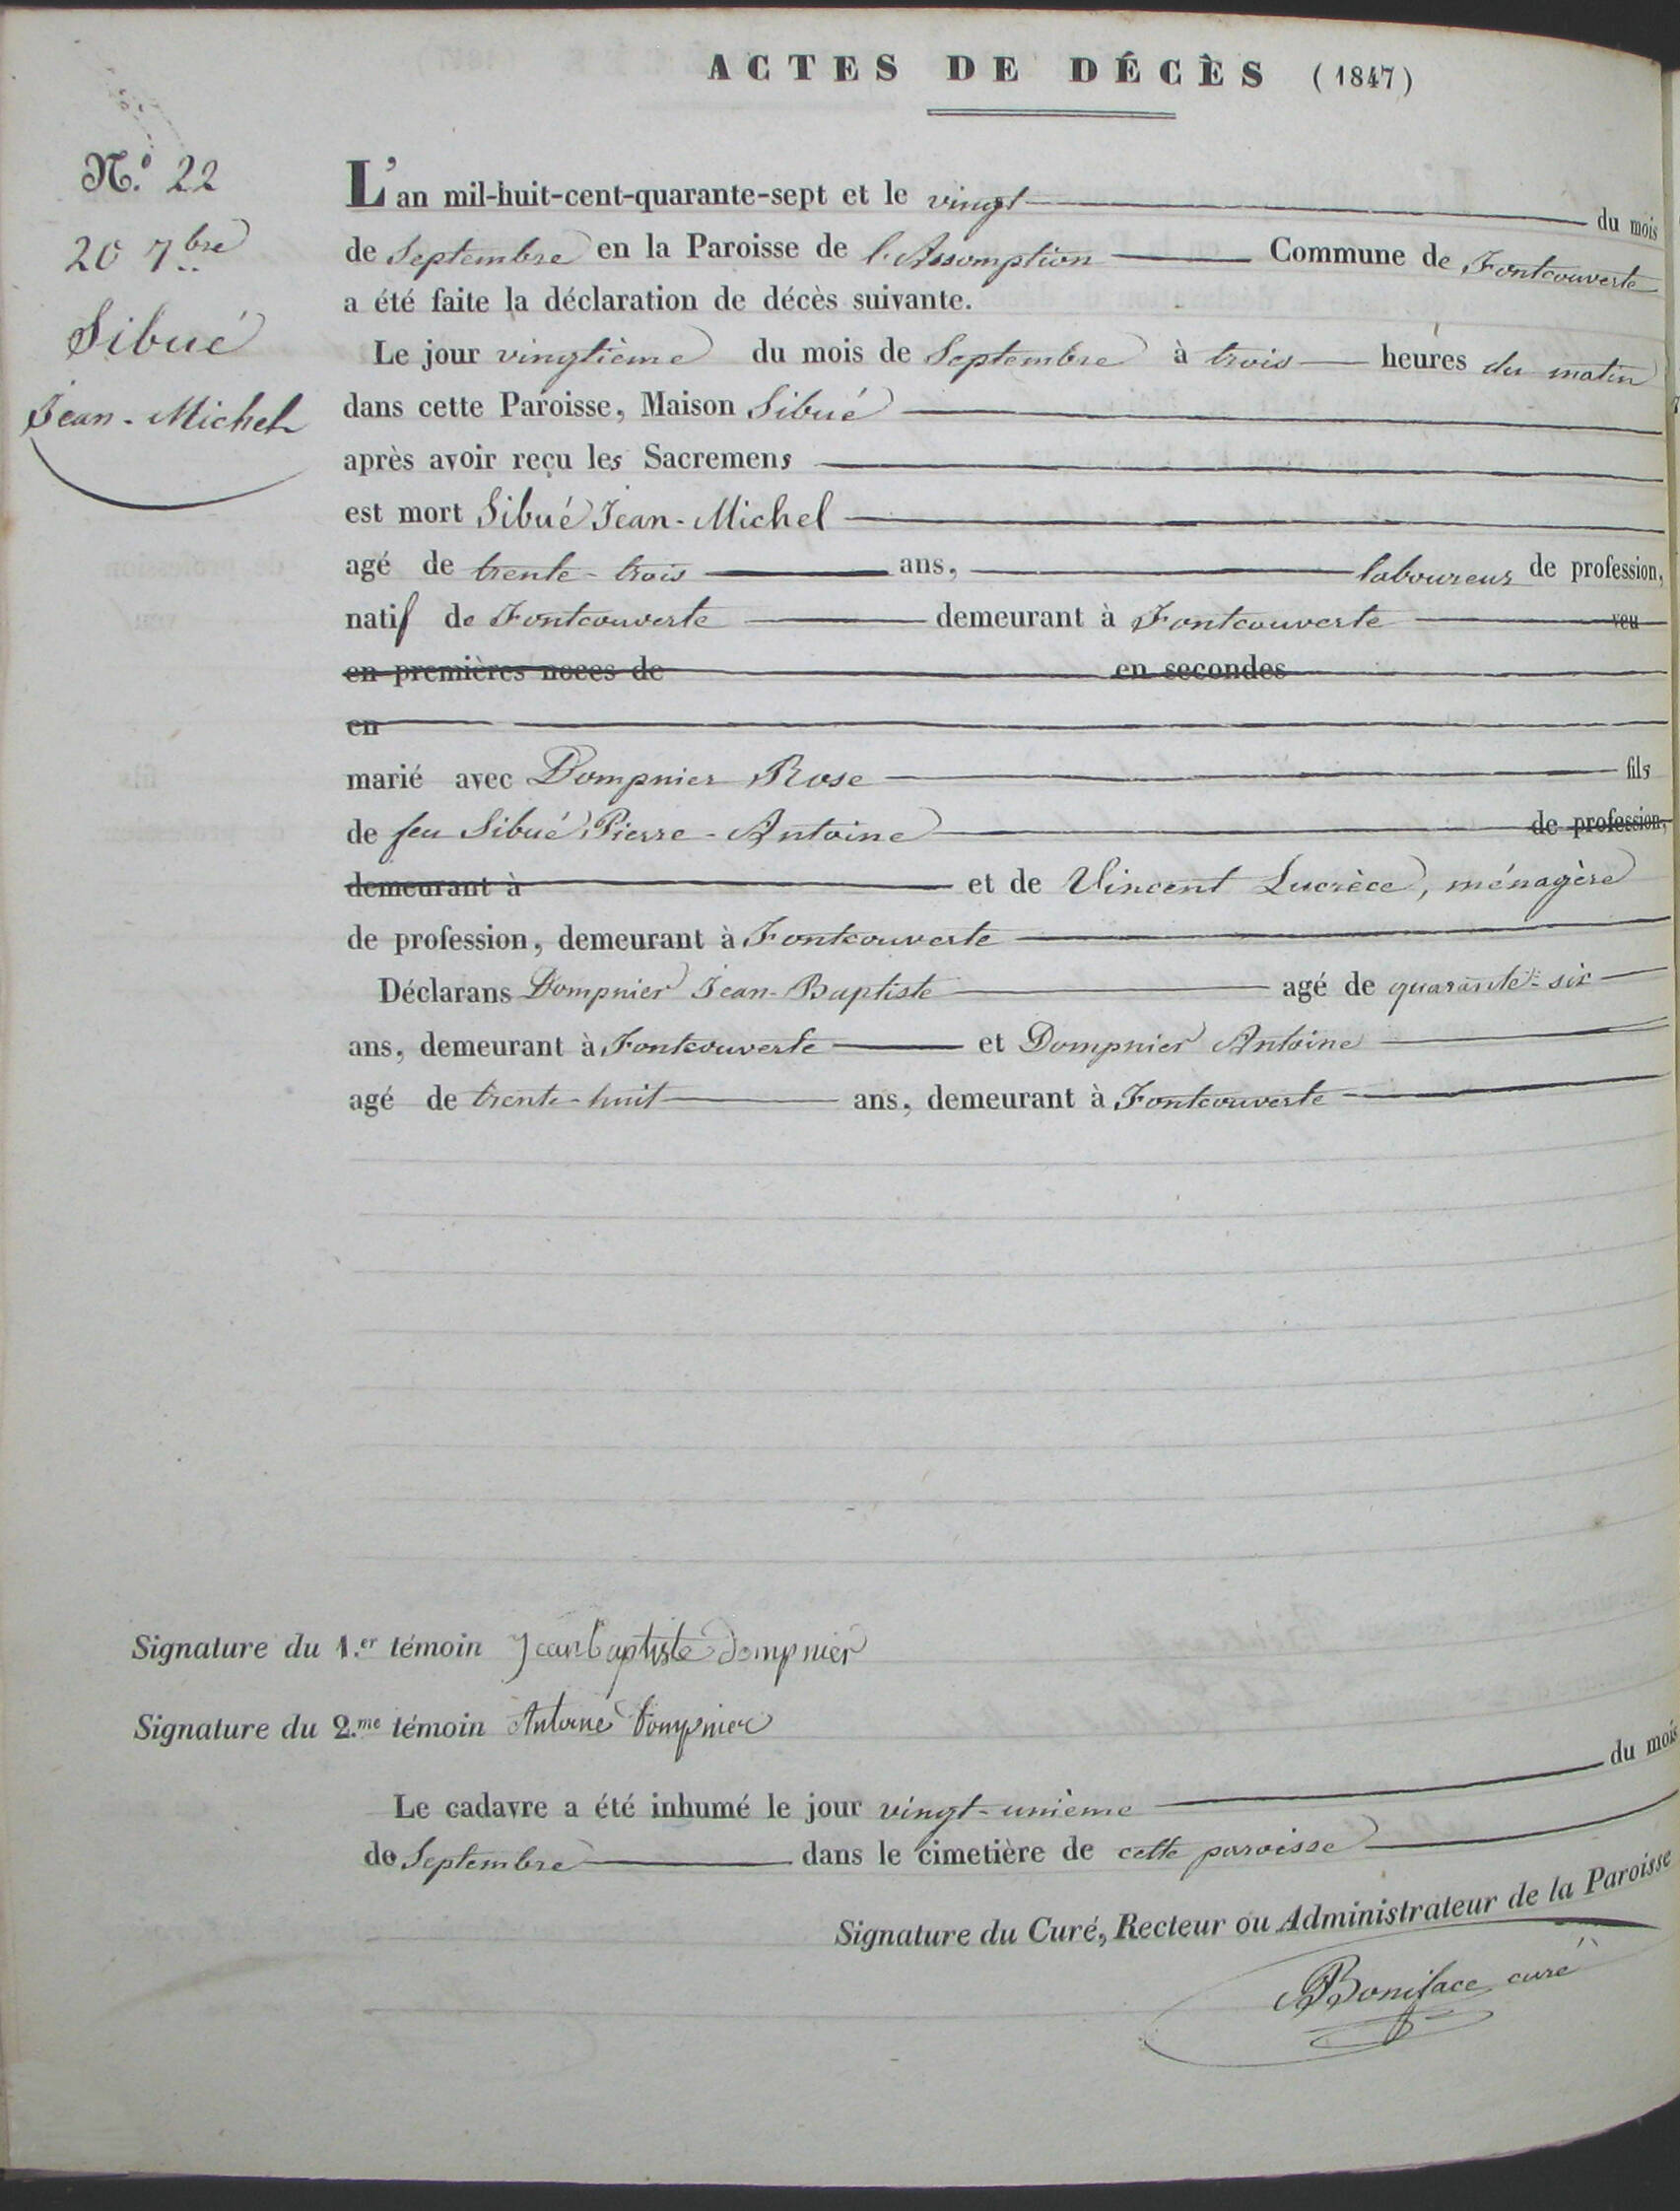 ACTES DE DÉCÈS (1847)
N.º 22
20 7.bre
Sibué
Jean-Michel
L'an mil-huit-cent-quarante-sept et le vingt du mois
de Septembre en la Paroisse de l'Assomption Commune de Fontcouverte
a été faite la déclaration de décès suivante.
Le jour vingtième du mois de Septembre à trois heures du matin
dans cette Paroisse, Maison Sibué
après avoir reçu les Sacremens
est mort Sibué Jean-Michel
agé de trente-trois ans, laboureur de profession,
natif de Fontcouverte demeurant à Fontcouverte veu
en premières noces de en secondes
en
marié avec Dompnier Rose fils
de feu Sibué Pierre-Antoine de profession,
demeurant à et de Vincent Lucrèce, ménagère
de profession, demeurant à Fontcouverte
Déclarans Dompnier Jean-Baptiste agé de quarante-six
ans, demeurant à Fontcouverte et Dompnier Antoine
agé de trente-huit ans, demeurant à Fontcouverte
Signature du 1.er témoin Jeanbaptiste dompnier
Signature du 2.me témoin Antoine Dompnier
Le cadavre a été inhumé le jour vingt-unième du mois
de Septembre dans le cimetière de cette paroisse
Signature du Curé, Recteur ou Administrateur de la Paroisse
Boniface curé